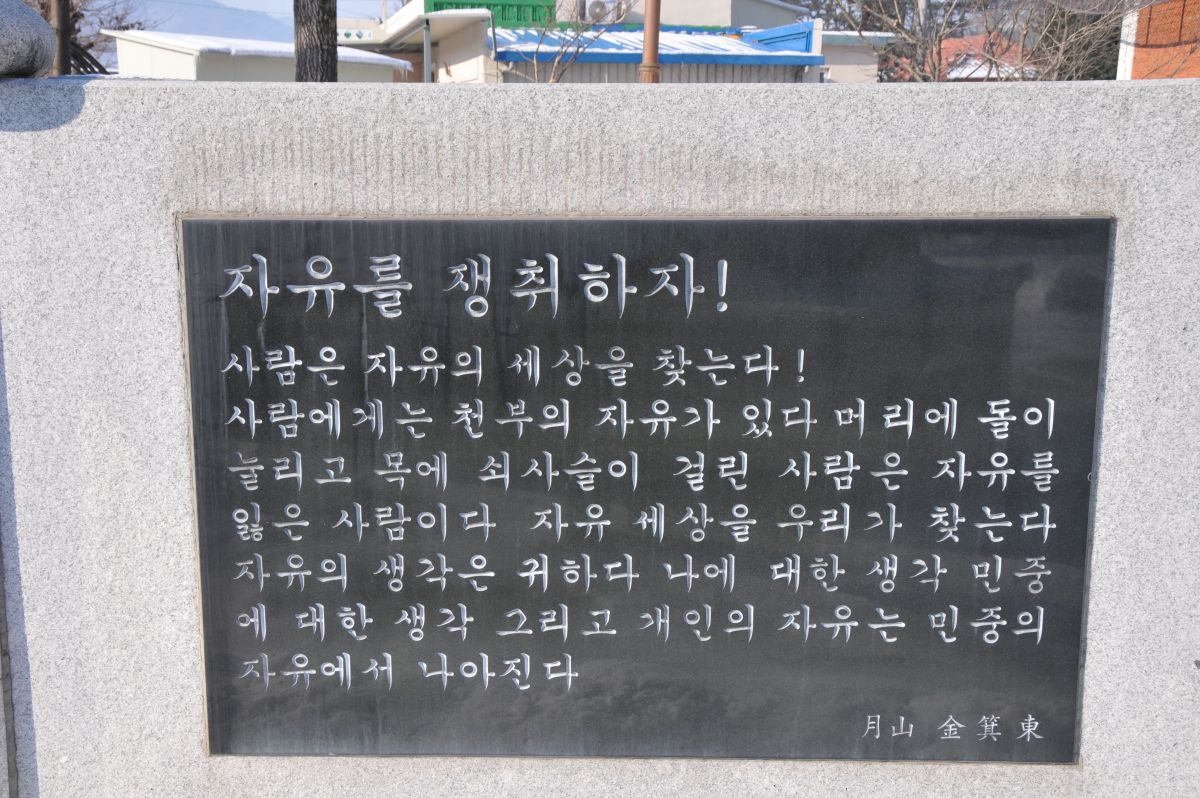 자유를 쟁취하자!
사람은 자유의 세상을 찾는다!
사람에게는 천부의 자유가 있다 머리에 돌이
눌리고 목에 쇠사슬이 걸린 사람은 자유를
잃은 사람이다 자유 세상을 우리가 찾는다
자유의 생각은 귀하다 나에 대한 생각 민중
에 대한 생각 그리고 개인의 자유는 민중의
자유에서 나아진다
月山 金箕東